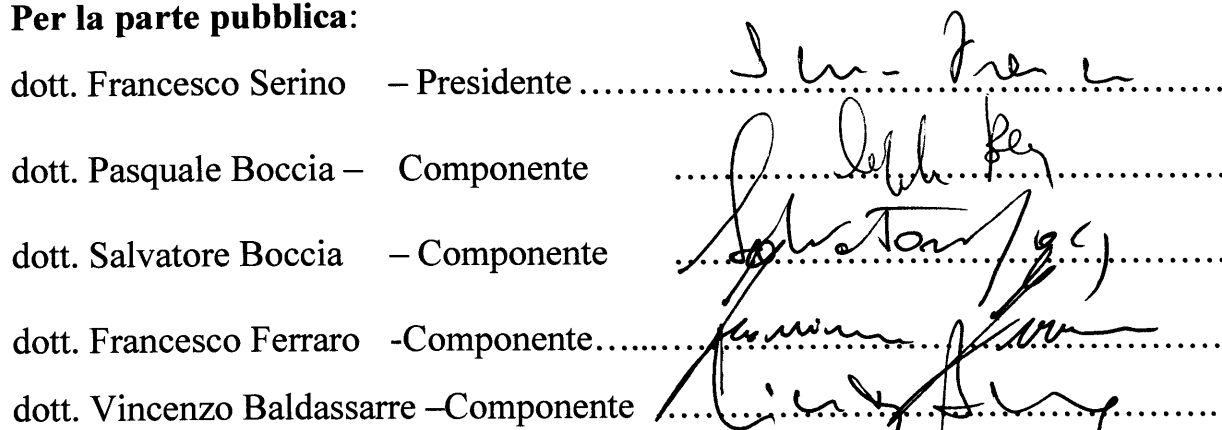 Per la parte pubblica:
dott. Francesco Serino – Presidente ..........................................
dott. Pasquale Boccia – Componente ..........................................
dott. Salvatore Boccia – Componente .......................................... Salvatore
dott. Francesco Ferraro -Componente..........................................
dott. Vincenzo Baldassarre –Componente ..........................................